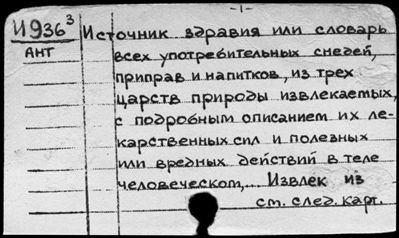 -1-
И936³ Источник здравия или словарь
Ант всех употребительных снедей,
приправ и напитков, из трех
царств природы извлекаемых,
с подробным описанием их ле-
карственных сил и полезных
или вредных действий в теле
человеческом,... Извлек из
см. след. карт.